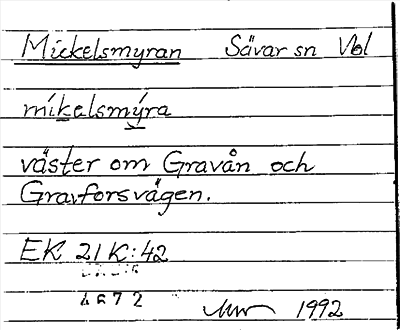 Mickelsmyran Sävar sn Vbl
mikelsmýra
väster om Gravån och
Gravforsvägen.
EK 21K:42
4672
1992